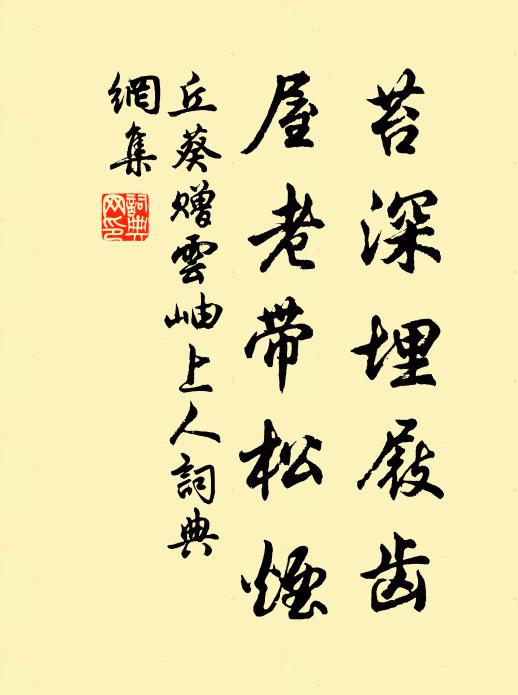 苔深埋屐齿
屋老带松烟
丘葵赠雲岫上人詞典
網集
詞典网印